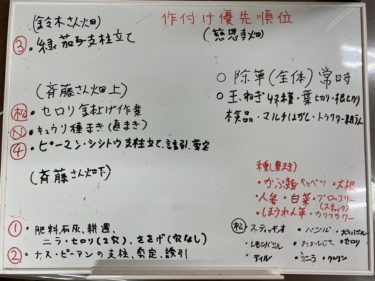 作付け優先順位
(鈴木さん畑)
③.緑茄子支柱立て
(慈恩寺畑)
○除草(全体)常時
○玉ねぎ収穫・葉切り・根切り
検品・マルチはがし・トラクター耕うん
(斉藤さん畑上)
㊗セロリ金上げ作業
Ⓝキュウリ種まき(直まき)
④・ピーマン・シシトウ支柱立て、誘引、剪定
(斉藤さん畑下)
①肥料、石灰、耕運、
ニラ・セロリ(2穴)、ささげ(穴なし)
②ナス・ピーマンの支柱、剪定、誘引
種(豊まき)
・かぶ
・キャベツ
・大根
・人参・白菜・ブロッコリー
(スティック)
・ほうれん草・カリフラワー
・スティッキオ
・バジル
・レモンバジル
・セロリ
・ディル
・ニラ